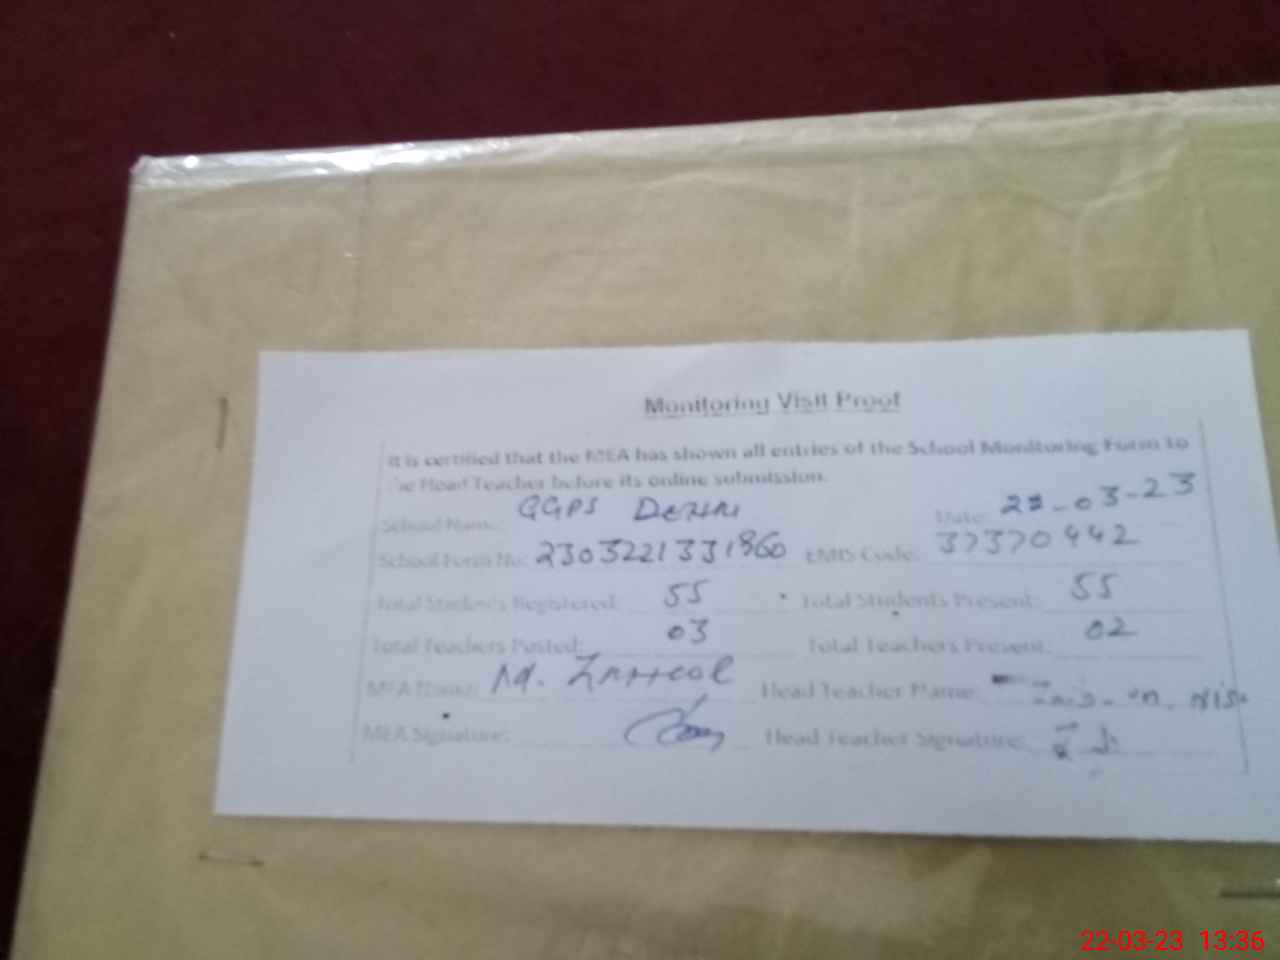 Monitoring Visit Proof
It is certified that the MEA has shown all entries of the School Monitoring Form to
the Head Teacher before its online submission.
School Name: GGPS Date: 22-03-23
School Form No: 2303221331860 EMIS Code: 37370442
Total Students Registered: 55 Total Students Present: 55
Total Teachers Posted: 03 Total Teachers Present: 02
MEA Name: Head Teacher Name:
MEA Signature: Head Teacher Signature:
22-03-23 13:36